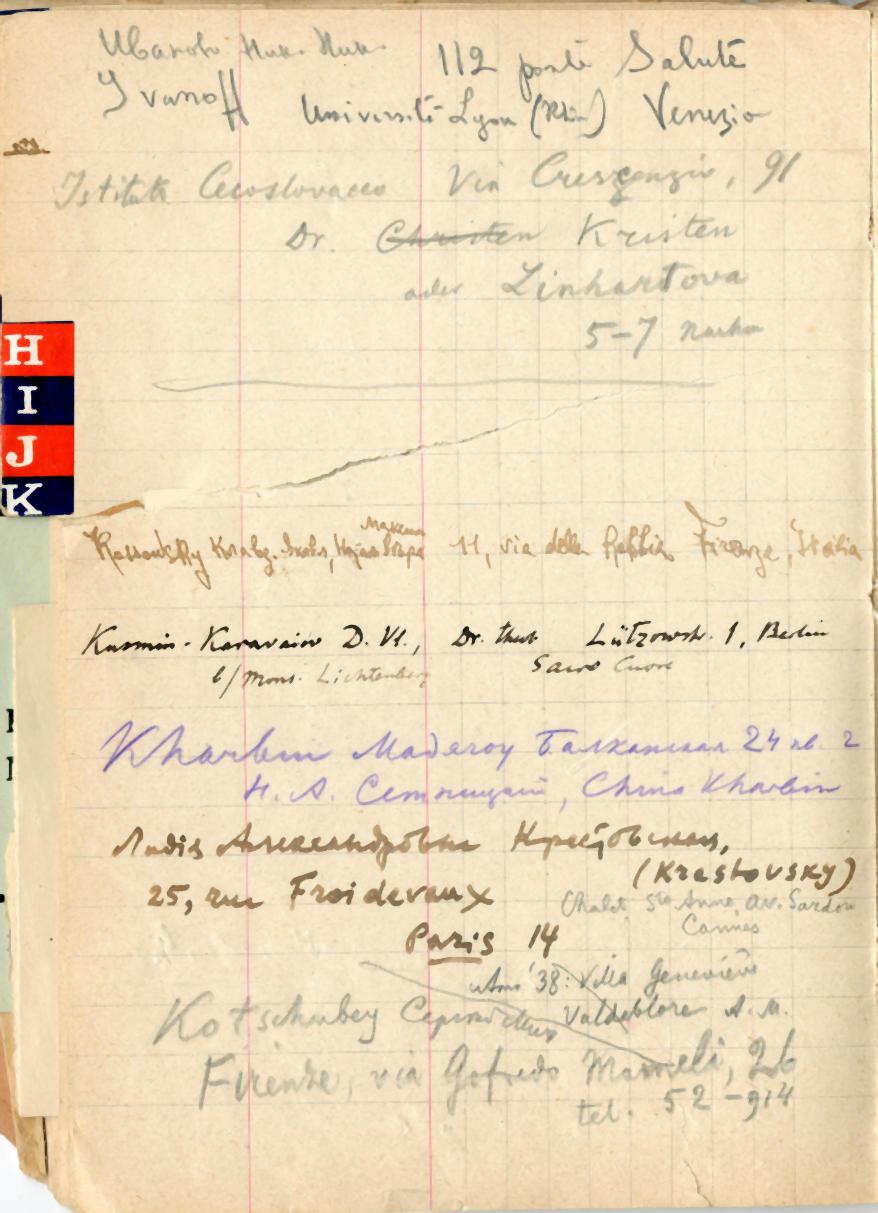 Иванов Ник. Ник. 112 ponte Salute
Ivanoff Université Lyon (Rhin) Venezia
Istituto Cecoslovacco Via Crescenzio, 91
Dr. Christen Kristen
oder Linhartova
5-7
H
I
J
K
11, via della Robbia, Firenze, Italia
Kusmin-Karavaiew D. Vl., Dr. theol. Lützowstr. 1, Berlin
b/ Mons. Lichtenberg Sacro Cuore
Kharbin Madegoy Балканская 24 кв. 2
Н. А. Сетницкий, China Kharbin
Лидия Александровна Крестовская,
(Krestovsky)
25, rue Froidevaux
Chalet Ste Anne, av. Sardou
Cannes
Paris 14
'38: Villa Geneviève
Valdeblore A. M.
Kotschubey
Firenze, via Gofredo Mameli, 26
tel. 52-914